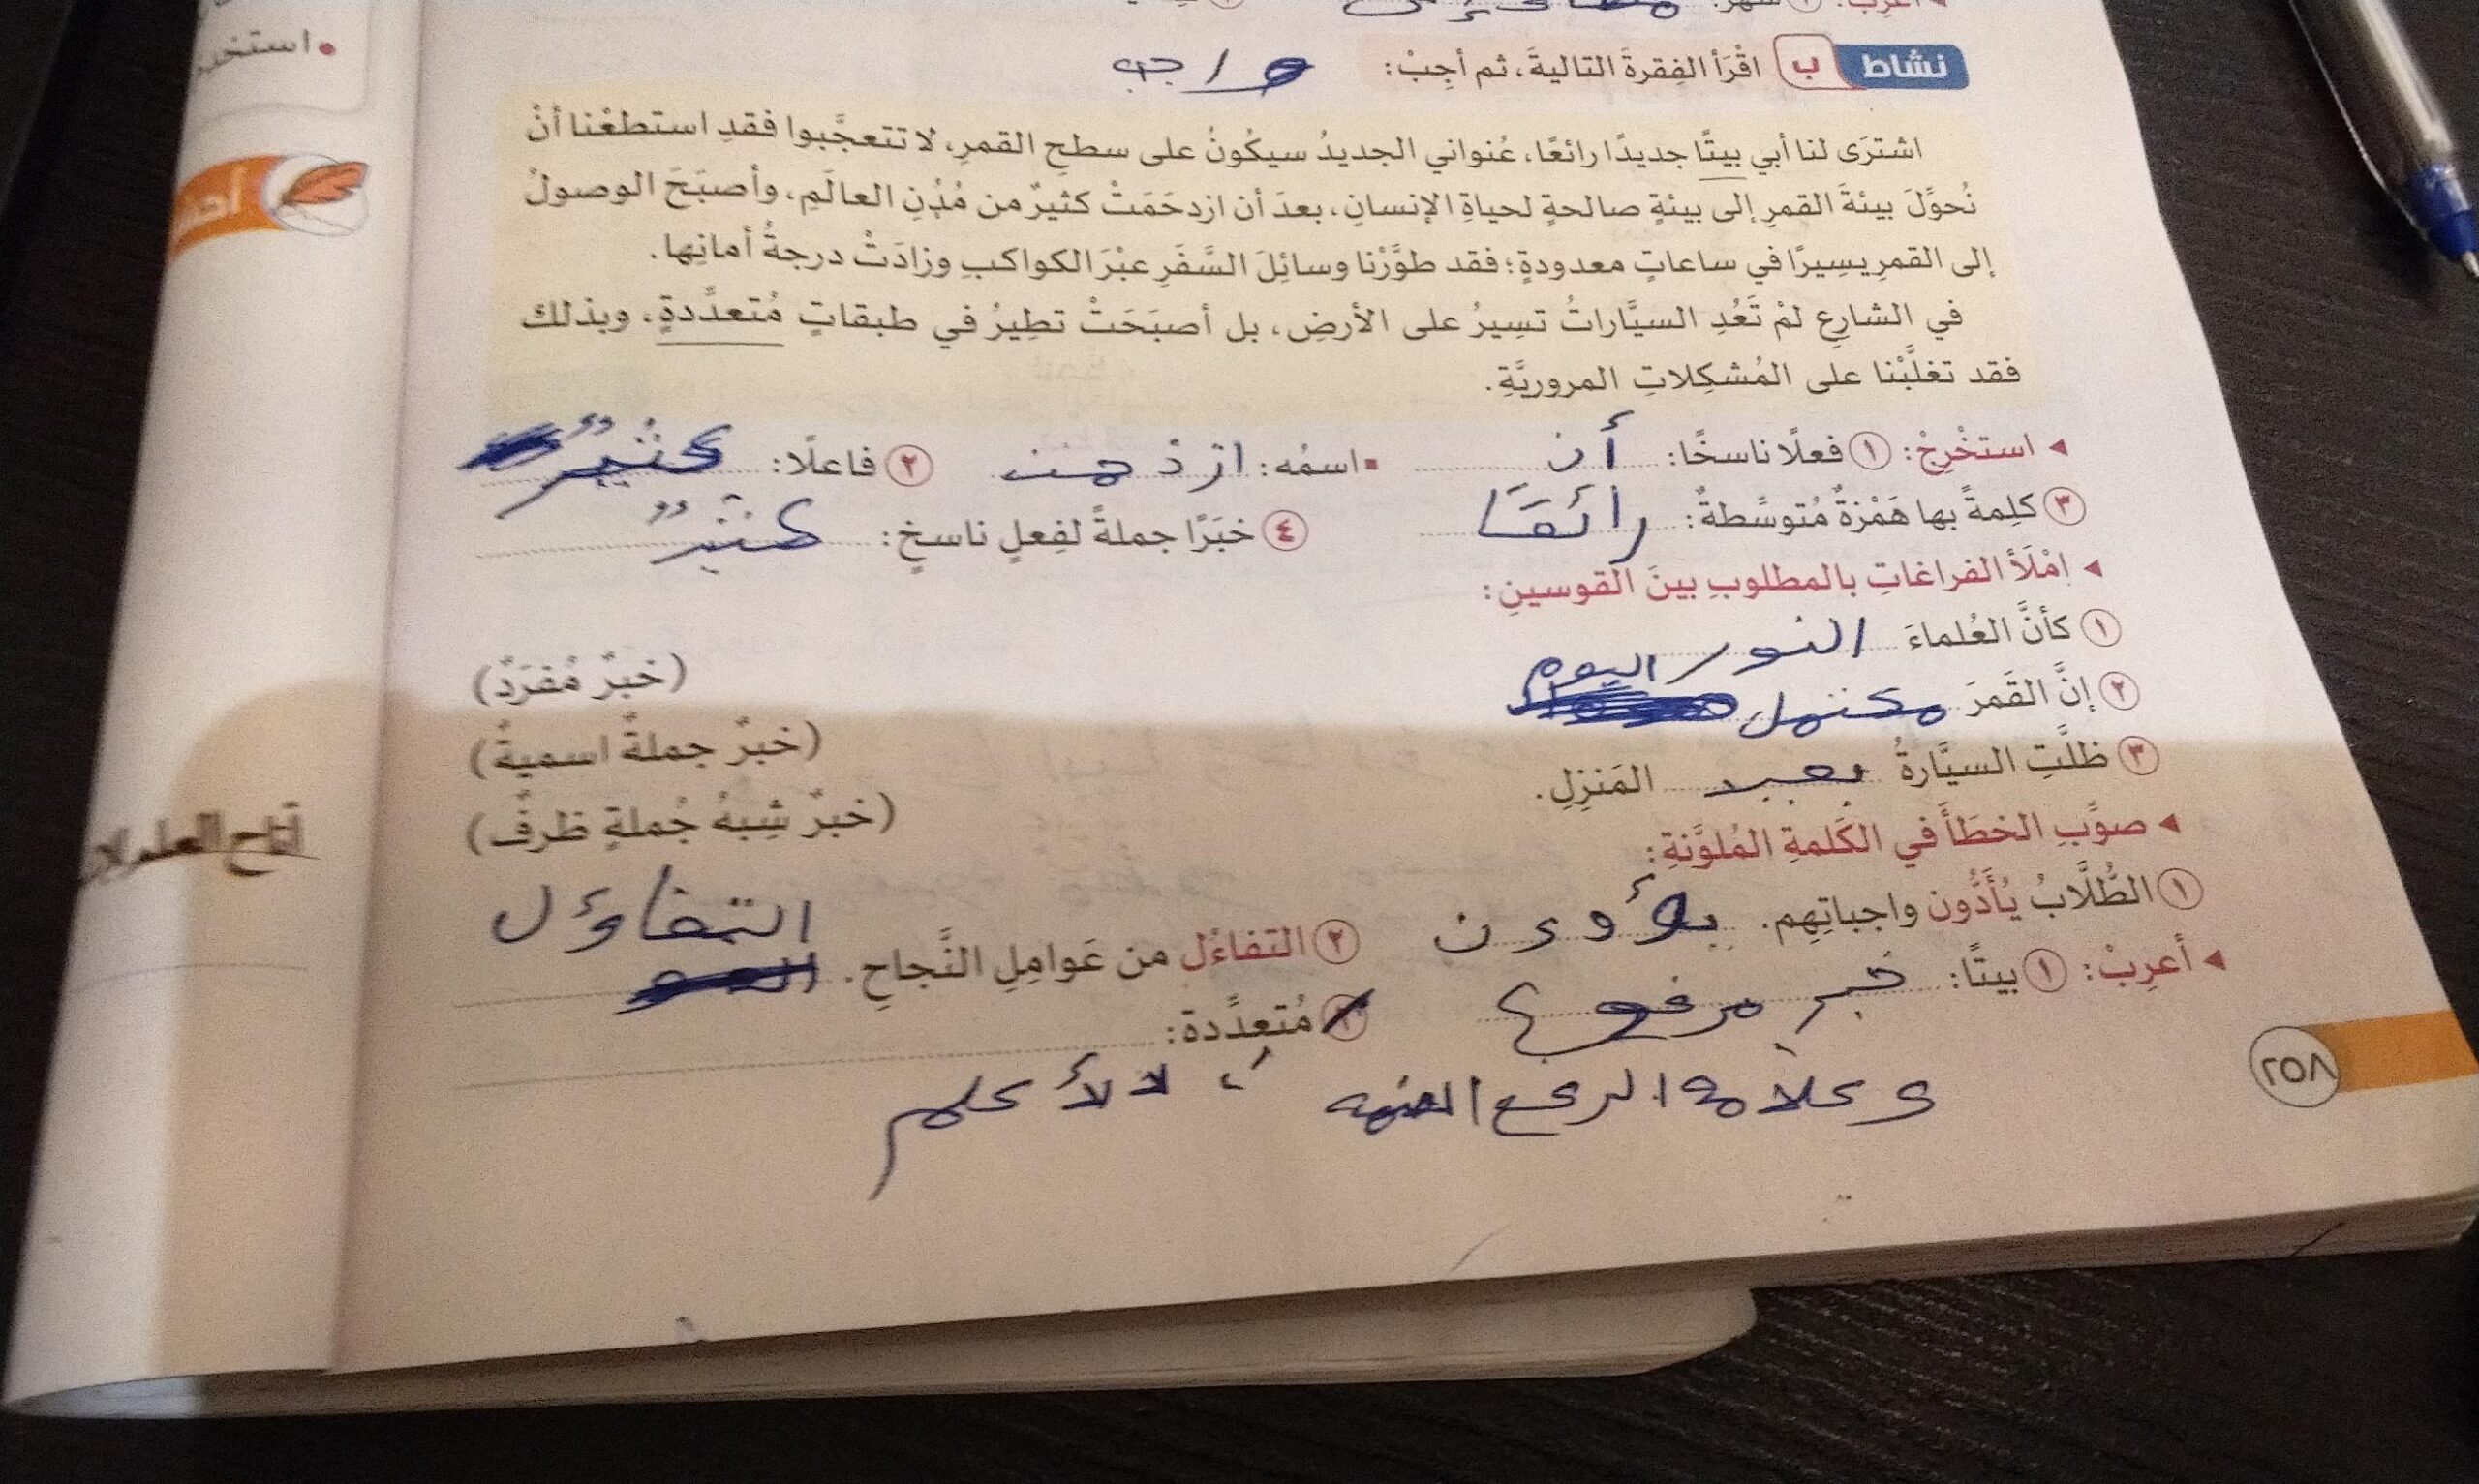 أعرِبْ: ١
نشاط ب اقْرَأ الفِقرةَ التاليةَ، ثم أجِبْ: واجب
اشترَى لنا أبي بيتًا جديدًا رائعًا، عُنواني الجديدُ سيكُونُ على سطحِ القمرِ، لا تتعجَّبوا فقدِ استطعْنا أنْ
نُحوِّلَ بيئةَ القمرِ إلى بيئةٍ صالحةٍ لحياةِ الإنسانِ، بعدَ أن ازدحَمَتْ كثيرٌ من مُدُنِ العالَمِ، وأصبَحَ الوصولُ
إلى القمرِ يسِيرًا في ساعاتٍ معدودةٍ؛ فقد طوَّرْنا وسائِلَ السَّفَرِ عبْرَ الكواكبِ وزادَتْ درجةُ أمانِها.
في الشارِعِ لمْ تَعُدِ السيَّاراتُ تسِيرُ على الأرضِ، بل أصبَحَتْ تطِيرُ في طبقاتٍ مُتعدِّدةٍ، وبذلك
فقد تغلَّبْنا على المُشكِلاتِ المروريَّةِ.
◂ استخْرِجْ: ١ فعلًا ناسخًا: أن ▪ اسمُه: ازدحمت ٢ فاعلًا: كثيرٌ
٣ كلِمةً بها هَمْزةٌ مُتوسِّطةٌ: رائعًا ٤ خبَرًا جملةً لفِعلٍ ناسخٍ: كثيرٌ
◂ اِمْلَأ الفراغاتِ بالمطلوبِ بينَ القوسينِ:
١ كأنَّ العُلماءَ النور (خبرٌ مُفرَدٌ)
٢ إنَّ القَمرَ مكتمل اليوم (خبرٌ جملةٌ اسميةٌ)
٣ ظلَّتِ السيَّارةُ بعيد المَنزِلِ. (خبرٌ شِبهُ جُملةٍ ظرفٌ)
◂ صوِّبِ الخطَأَ في الكَلمةِ المُلوَّنةِ:
١ الطُّلَّابُ يُأَدُّون واجباتِهِم. ٢ التفاءُل من عَوامِلِ النَّجاحِ. التفاؤل
◂ أعرِبْ: ١ بيتًا: خبر مرفوع ٢ مُتعدِّدة:
وعلامة الرفع الضمه لا لا أعلم
٢٥٨
استخر